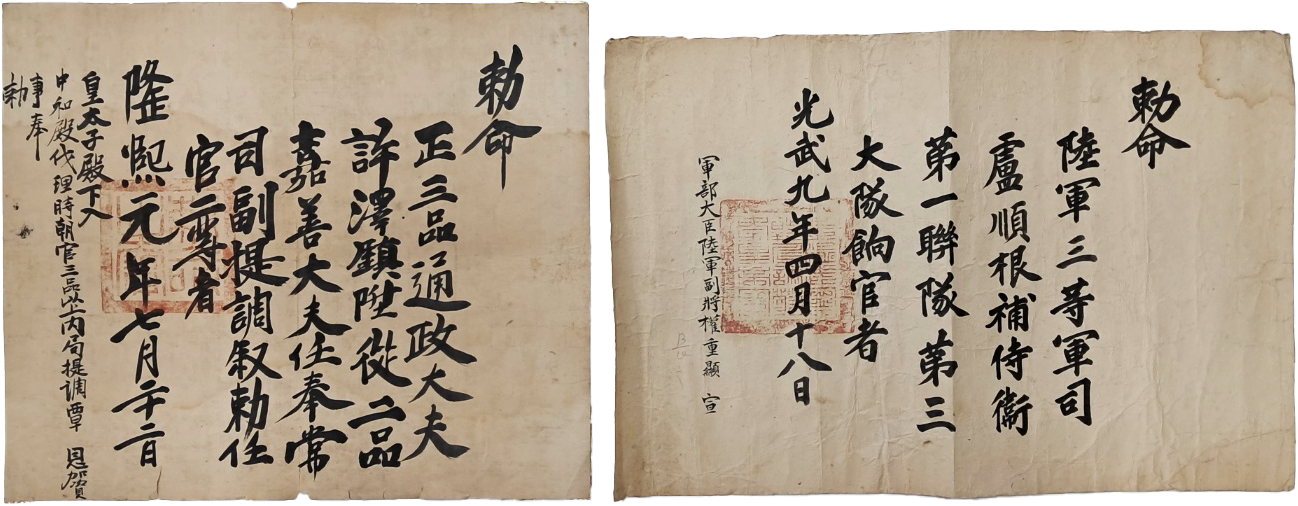 勅命
正三品通政大夫
許澤鎭陞從二品
嘉善大夫任奉常
司副提調叙勅任
官二等者
隆熙元年七月二十二日
皇太子殿下入
中和殿代理時朝官三品以上內局提調覃 恩加資
事奉
勅
勅命
陸軍三等軍司
盧順根補侍衛
第一聯隊第三
大隊餉官者
光武九年四月十八日
軍部大臣陸軍副將權重顯 宣